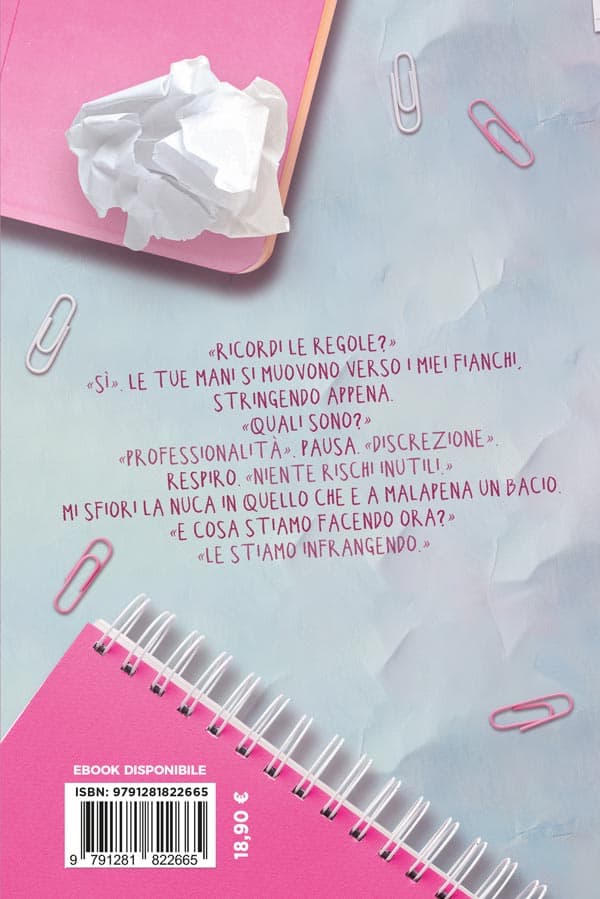 «RICORDI LE REGOLE?»
«SÌ». LE TUE MANI SI MUOVONO VERSO I MIEI FIANCHI,
STRINGENDO APPENA.
«QUALI SONO?»
«PROFESSIONALITÀ». PAUSA. «DISCREZIONE».
RESPIRO. «NIENTE RISCHI INUTILI.»
MI SFIORI LA NUCA IN QUELLO CHE E A MALAPENA UN BACIO.
«E COSA STIAMO FACENDO ORA?»
«LE STIAMO INFRANGENDO.»
EBOOK DISPONIBILE
ISBN: 9791281822665
9 791281 822665
18,90 €